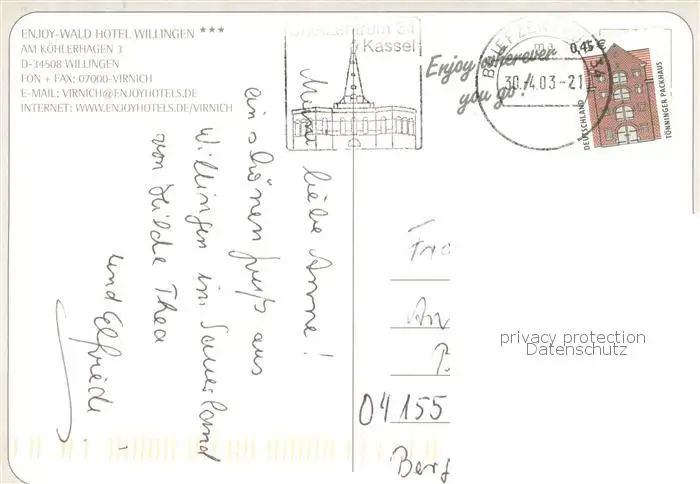 ENJOY-WALD HOTEL WILLINGEN ***
AM KÖHLERHAGEN 3
D-34508 WILLINGEN
FON + FAX: 07000-VIRNICH
E-MAIL: VIRNICH@ENJOYHOTELS.DE
INTERNET: WWW.ENJOYHOTELS.DE/VIRNICH
Briefzentrum 34
Kassel
Enjoy wherever
you go!
BRIEFZENTRUM 34
ma
30.4.03-21
0,45 €
DEUTSCHLAND
TÖNNINGER PACKHAUS
Meine liebe Anne!
ein schönen Gruß aus
Willingen im Sauerland
von Hilde Thea
und Elfriede
Fra
An
04155
Berg
privacy protection
Datenschutz